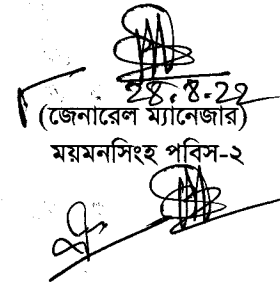 ২৪.৪.২২
(জেনারেল ম্যানেজার)
ময়মনসিংহ পবিস-২